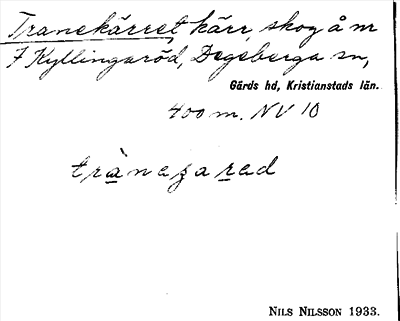 Tranekärret kärr, skog å m
7 Kyllingaröd, Degeberga sn,
Gärds hd, Kristianstads län.
400 m. NV 10
NILS NILSSON 1933.